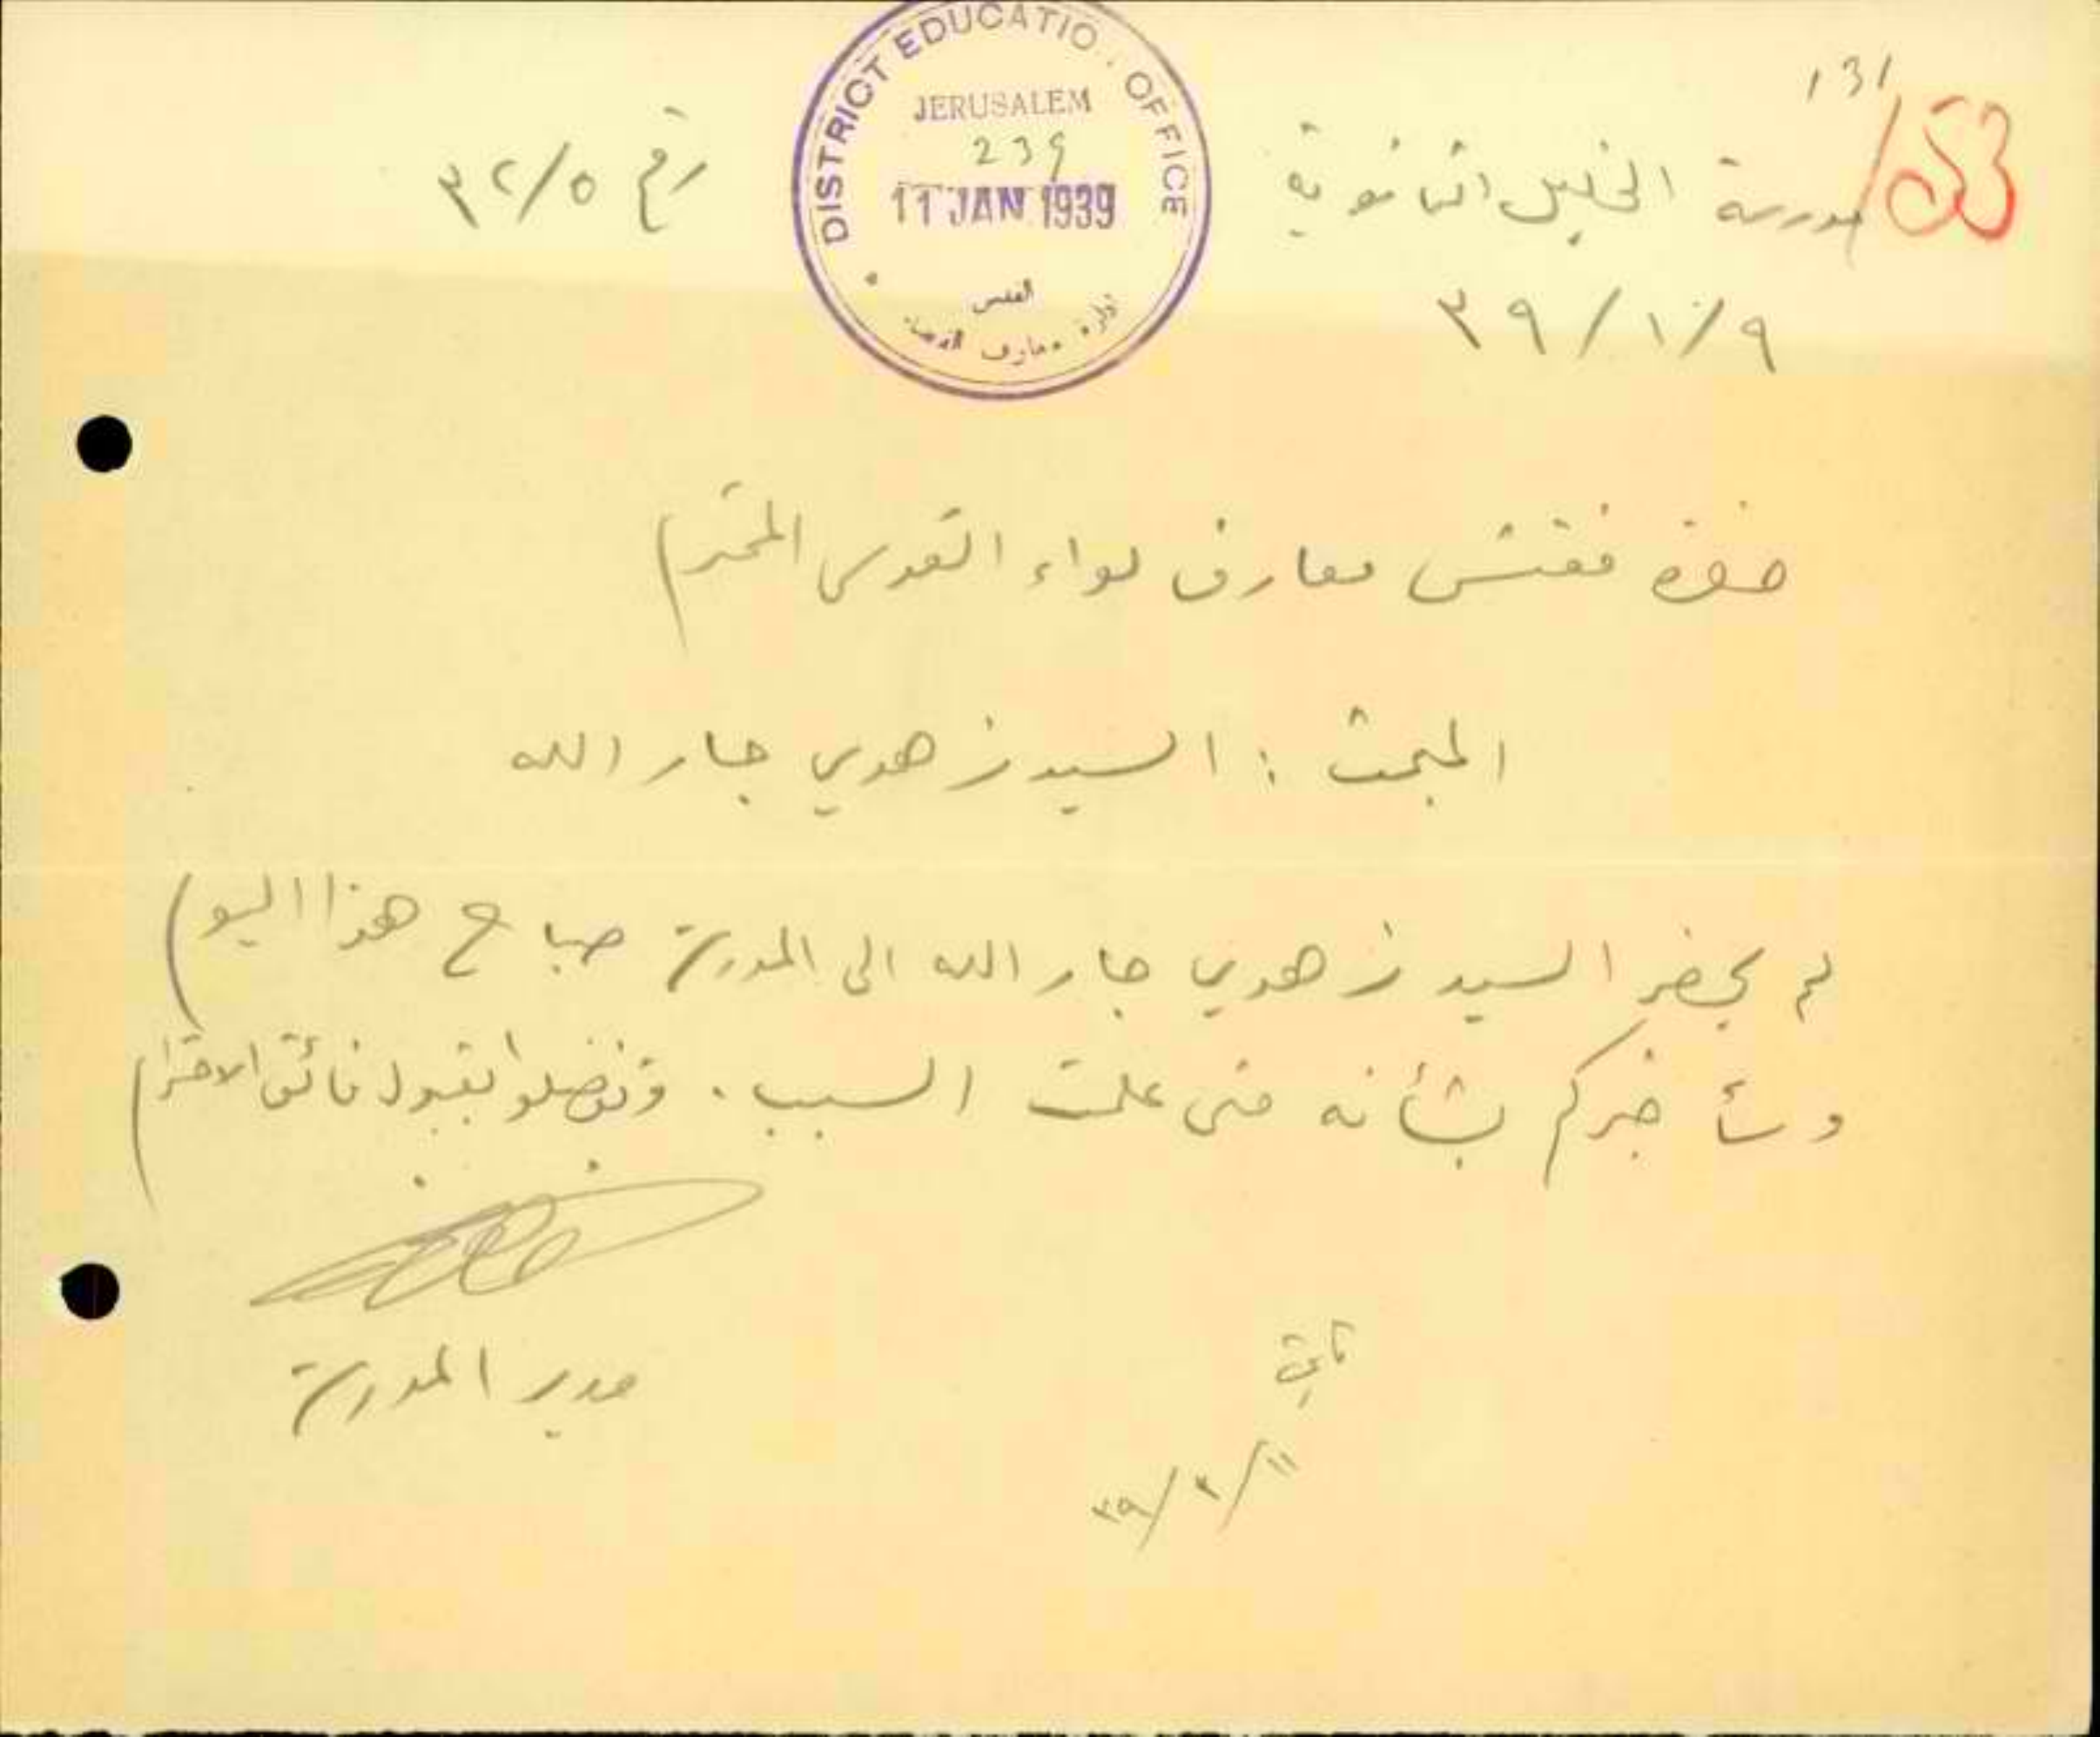 131
53
مدرسة الخليل الثانوية
رقم ٣٢/٥
DISTRICT EDUCATIO. OFFICE
JERUSALEM
239
11 JAN 1939
القدس
ادارة معارف
٣٩/١/٩
حضرة مفتش معارف لواء القدس المحترم
المبحث : السيد زهدي جار الله
لم يحضر السيد زهدي جار الله الى المدرسة صباح هذا اليوم
وسأخبركم بشأنه متى علمت السبب . وتفضلوا بقبول فائق الاحترام
مدير المدرسة